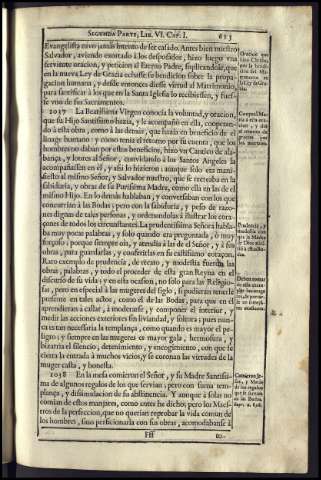 SEGUNDA PARTE, LIB. VI. CAP. I. 613
Evangelista tuvo jamàs intento de ser casado. Antes bien nuestro
Salvador, aviendo exortado à los desposados, hizo luego una
ferviente oracion, y peticion al Eterno Padre, suplicandole, que
en la nueva Ley de Gracia echasse su bendicion sobre la propa-
gacion humana, y desde entonces diesse virtud al Matrimonio,
para santificar à los que en la Santa Iglesia lo recibiessen, y fues-
se vno de sus Sacramentos.
1037 La Beatissima Virgen conocia la voluntad, y oracion,
que su Hijo Santissimo hazia, y le acompañò en ella, cooperan-
do à esta obra, como à las demàs, que hazia en beneficio de el
linage humano: y como tenia el retorno por su cuenta, que los
hombres no daban por estos beneficios, hizo vn Cantico de ala-
bança, y loores al Señor, combidando à los Santos Angeles la
acompañassen en èl, y assi lo hizieron: aunque solo era mani-
fiesto al mismo Señor, y Salvador nuestro, que se recreaba en la
sabiduria, y obras de su Purissima Madre, como ella en las de el
mismo Hijo. En lo demàs hablaban, y conversaban con los que
concurrian à las Bodas; pero con la sabiduria, y peso de razo-
nes dignas de tales personas, y ordenandolas à ilustrar los cora-
çones de todos los circunstantes. La prudentissima Señora habla-
ba muy pocas palabras, y solo quando era preguntada, ò muy
forçoso; porque siempre oìa, y atendia à las de el Señor, y à sus
obras, para guardarlas, y conferirlas en su castissimo coraçon.
Raro exemplo de prudencia, de recato, y modestia fueron las
obras, palabras, y todo el proceder de esta gran Reyna en el
discurso de su vida; y en esta ocasion, no solo para las Religio-
sas, pero en especial à las mugeres del siglo, si pudieran tenerle
presente en tales actos, como el de las Bodas, para que en èl
aprendieran à callar, à moderarse, y componer el interior, y
medir las acciones exteriores sin liviandad, y soltura; pues nun-
ca es tan necessaria la templança, como quando es mayor el pe-
ligro; y siempre en las mugeres es mayor gala, hermosura, y
bizarria el silencio, detenimiento, y encogimiento, con que se
cierra la entrada à muchos vicios, y se coronan las virtudes de la
muger casta, y honesta.
1038 En la mesa comieron el Señor, y su Madre Santissi-
ma de algunos regalos de los que servian; pero con suma tem-
plança, y dissimulacion de su abstinencia. Y aunque à solas no
comian de estos manjares, como antes he dicho; pero los Maes-
tros de la perfeccion, que no querian reprobar la vida comun de
los hombres, sino perficionarla con sus obras, acomodabanse à
Fff to-